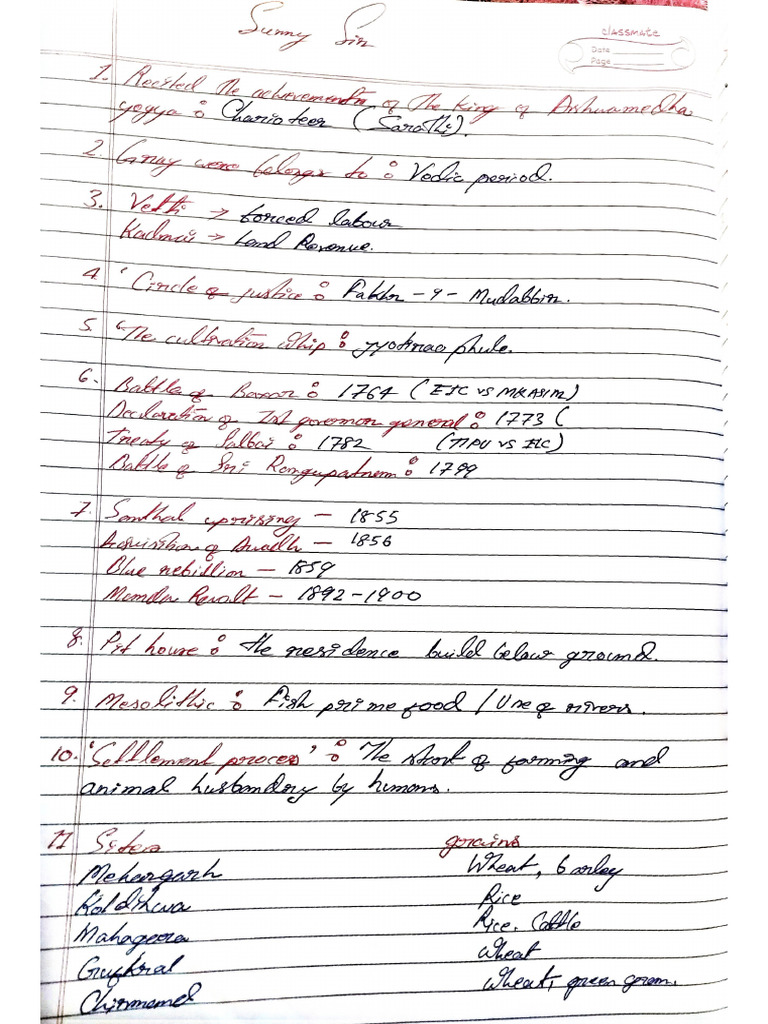 Sunny Sir
classmate
Date
Page
1. Recited the achievements of the King of Ashwamedha
yogya : Charioteer (Sarathi).
2. Gray were belongs to : Vedic period.
3. Vetti → forced labour
Kadmai → Land Revenue.
4. 'Circle of justice : Fakhr-y-Mudabbir.
5. 'The cultivation whip : Jyotirao phule.
6. Battle of Boxar : 1764 (EIC vs MKASIM)
Declaration of Ist governor general : 1773 (
Treaty of Salbai : 1782 (TIPU vs EIC)
Battle of Sri Rangupatnem : 1799
7. Santhal uprising — 1855
Acquisition of Awadh — 1856
Blue rebillion — 1859
Munda Revolt — 1892-1900
8. Pit house : the residence build below ground.
9. Mesolithic : Fish prime food / Use of rivers.
10. 'Settlement process' : The start of farming and
animal husbandry by humans.
11 Sites grains
Mehargarh Wheat, barley
Koldihwa Rice
Mahagara Rice. Cattle
Gufkral Wheat
Chirmemd Wheat, green gram.